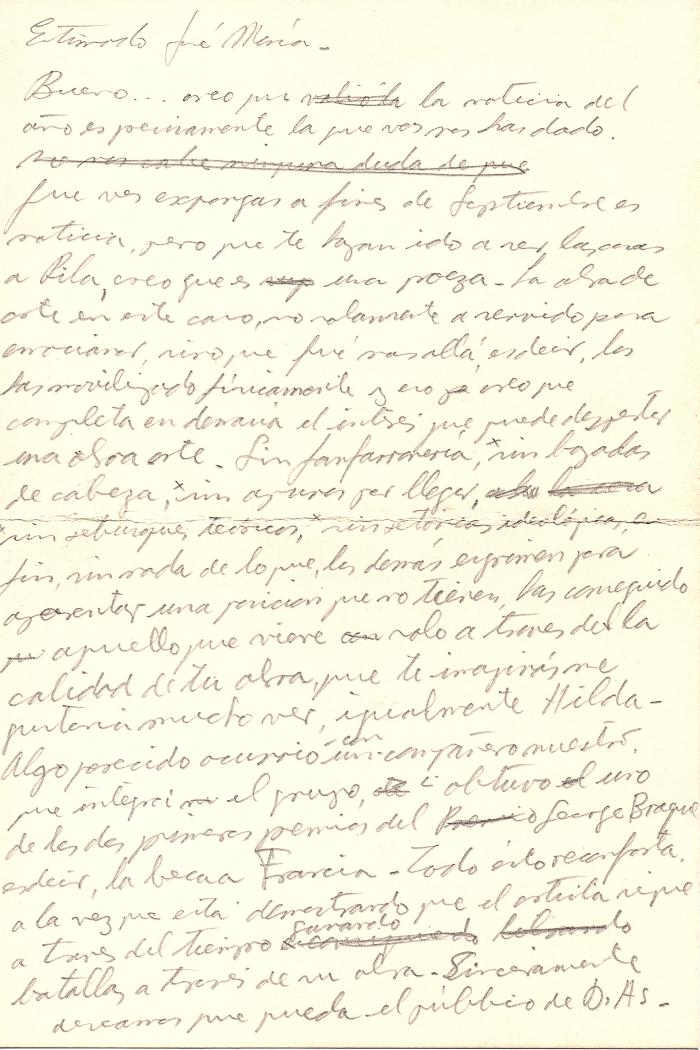 Estimado José María -
Bueno... creo que ~~valió la~~ la noticia del
año es precisamente la que vos nos has dado.
~~No nos cabe ninguna duda de que~~
Que vos expongas a fines de Septiembre es
noticia, pero que te hayan ido a ver, las cosas
a Pila, creo que es una proeza - La obra de
arte en este caso, no solamente a servido para
emocionar, sino que fué mas allá, es decir, los
has movilizado físicamente y eso creo que
completa en demasía el interés que puede despertar
una obra arte - Sin fanfarronería, sin bajadas
de cabeza, sin apuros por llegar,
sin retruques teóricos, sin retóricas ideológicas, en
fin, sin nada de lo que, los demás esgrimen para
aparentar una posición que no tienen, has conseguido
aquello que viene solo a traves de la
calidad de tu obra, que te imaginás me
gustaría mucho ver, igualmente Hilda -
Algo parecido ocurrió con un compañero nuestro,
que integra el grupo, obtuvo uno
de los dos primeros premios del ~~Premio~~ George Braque
es decir, la beca a Francia - Todo ésto reconforta,
a la vez que está demostrando que el artista sigue
a traves del tiempo ganando ~~consiguiendo~~ ~~librando~~
batallas a través de su obra - Sinceramente
deseamos que pueda el público de Bs. As -